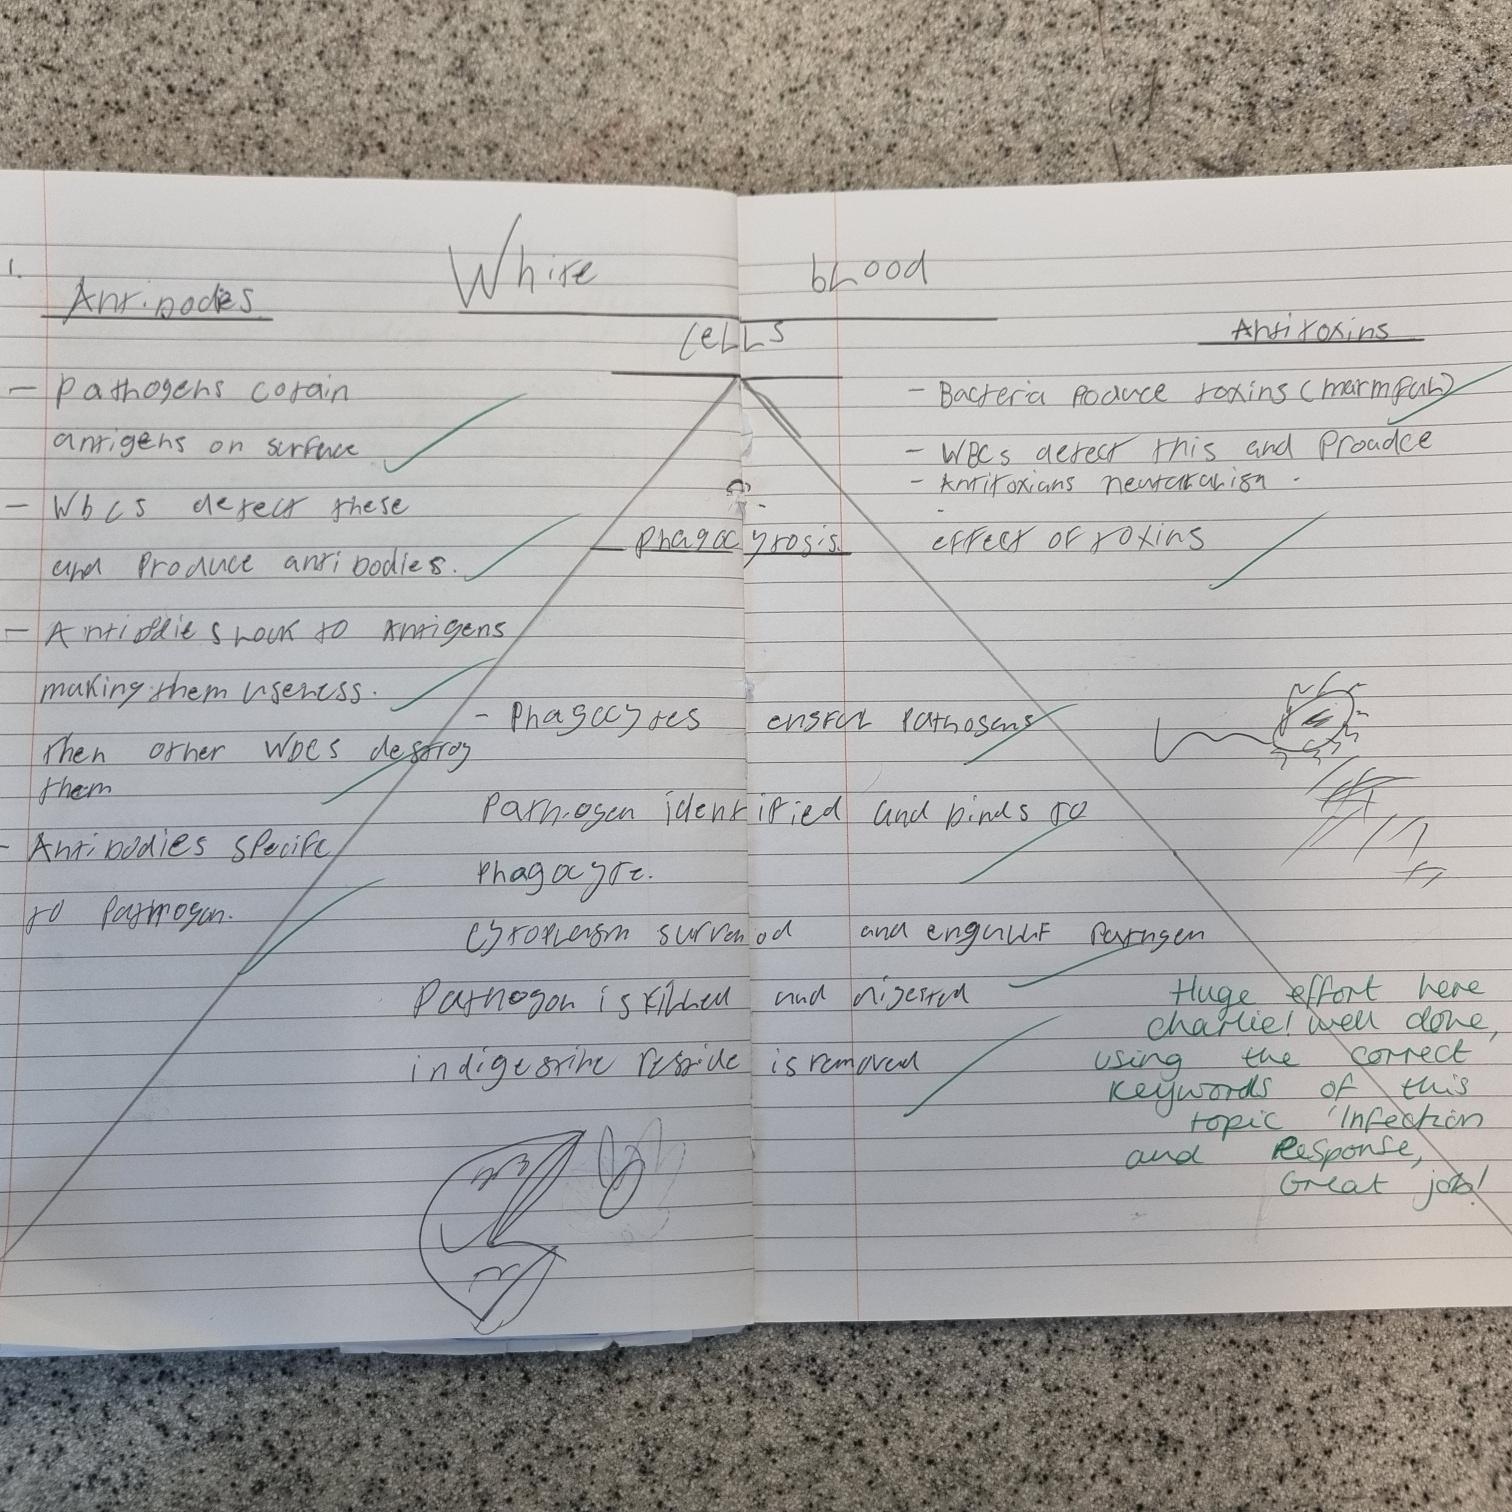 White blood
cells
1.
Antibodies
- pathogens cotain
antigens on surface
- Wbcs detect these
and produce antibodies.
- Antiodie s lock to antigens
making them useness.
Then other WBCs destroy
them
- Antibodies specifc
to pathogon.
phagocytosis
- Phagocytes engful pathogens
Pathogen identified and binds to
phagocyte.
cytoplasm surrond and engulf pathgen
Pathogon is killed and digested
indigestine reside is removed
Antitoxins
- Bacteria poduce toxins (harmful)
- WBCs detect this and Proadce
- Antitoxians neutralisn
effect of toxins
Huge effort here
charlie! well done,
using the correct
keywords of this
topic 'Infection
and Response,
Great job!